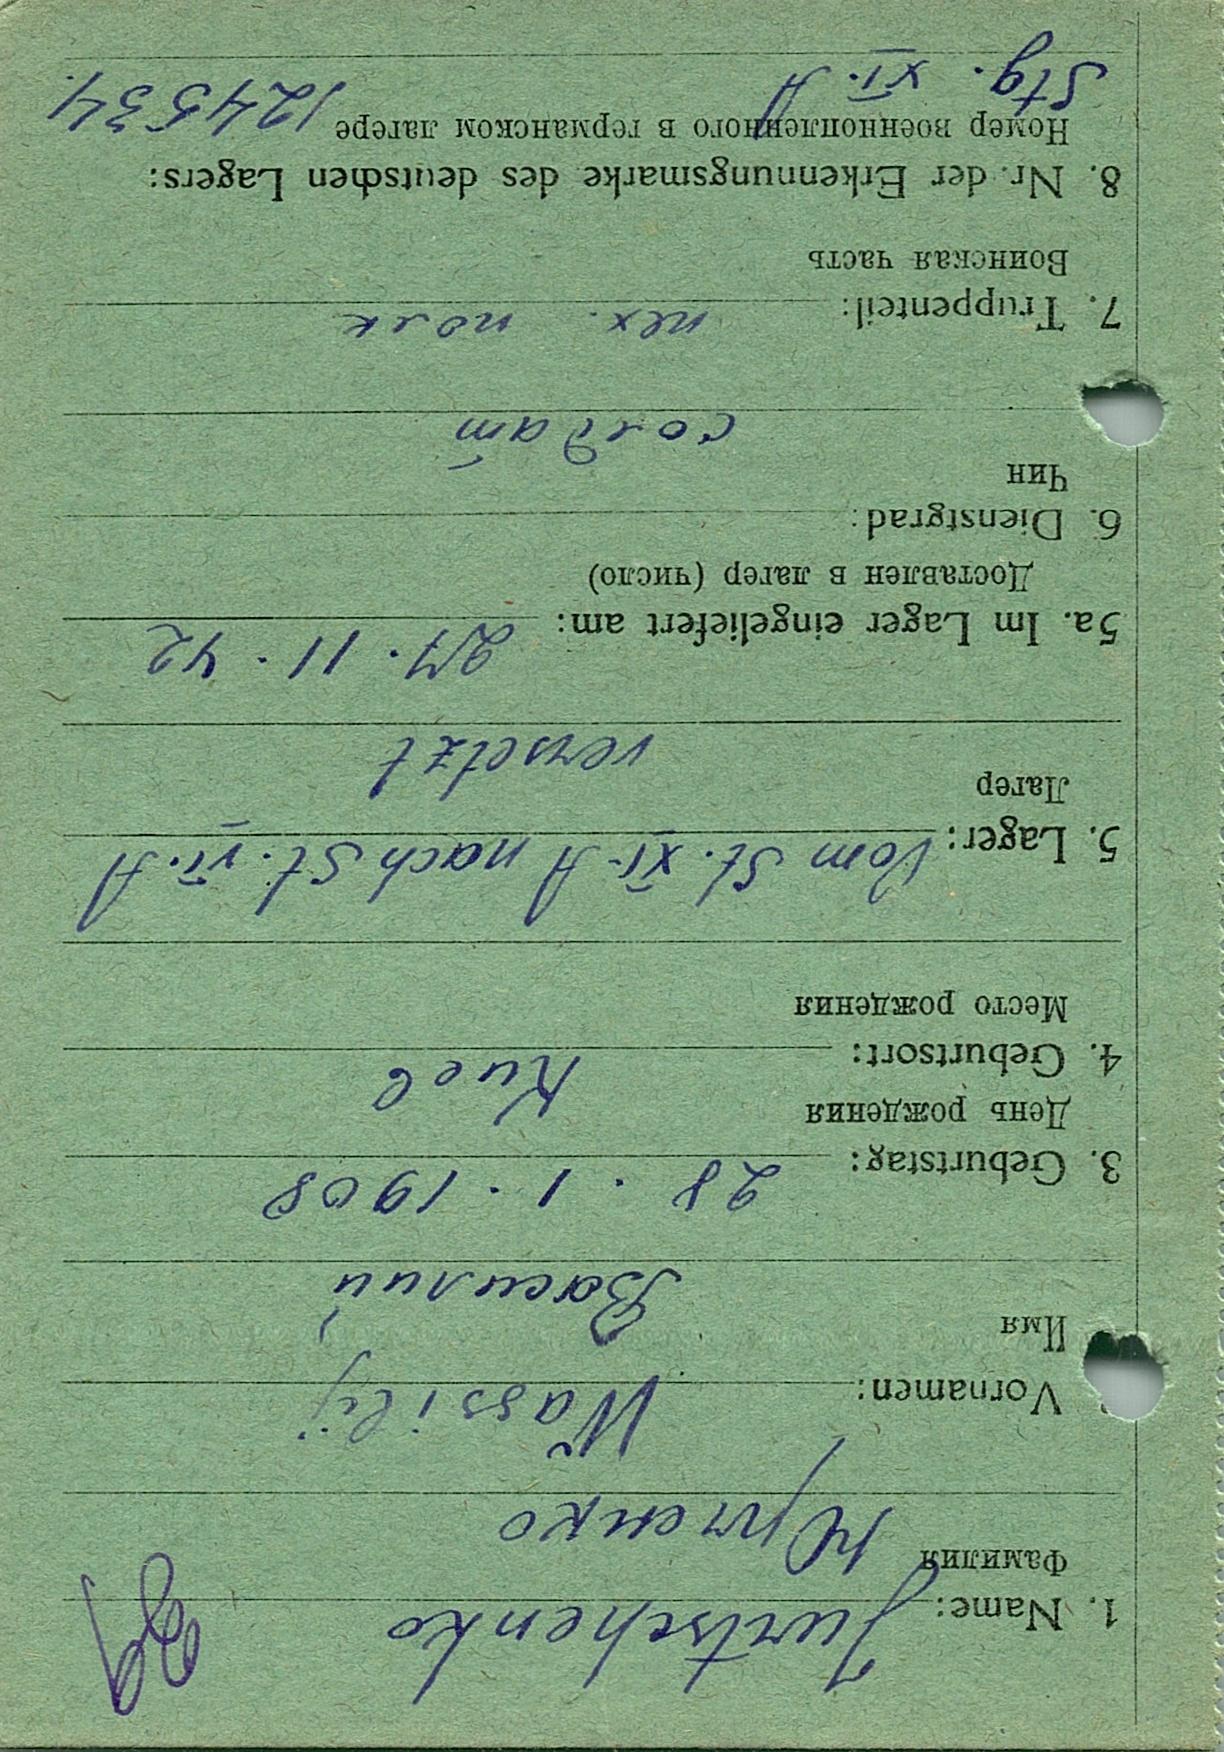 1. Name: Jurtschenko
Фамилия
Юрченко
Vornamen: Wassilij
Имя
Василий
3. Geburtstag: 28. 1. 1908
День рождения
4. Geburtsort: Киев
Место рождения
5. Lager: Vom St. XI. A nach St. VI. A
Лагер
versetzt
5a. Im Lager eingeliefert am: 27. 11. 42
Доставлен в лагер (число)
6. Dienstgrad:
Чин
солдат
7. Truppenteil: пех. полк
Воинская часть
8. Nr. der Erkennungsmarke des deutschen Lagers:
Номер военнопленного в германском лагере 124534.
Stg. XI. A